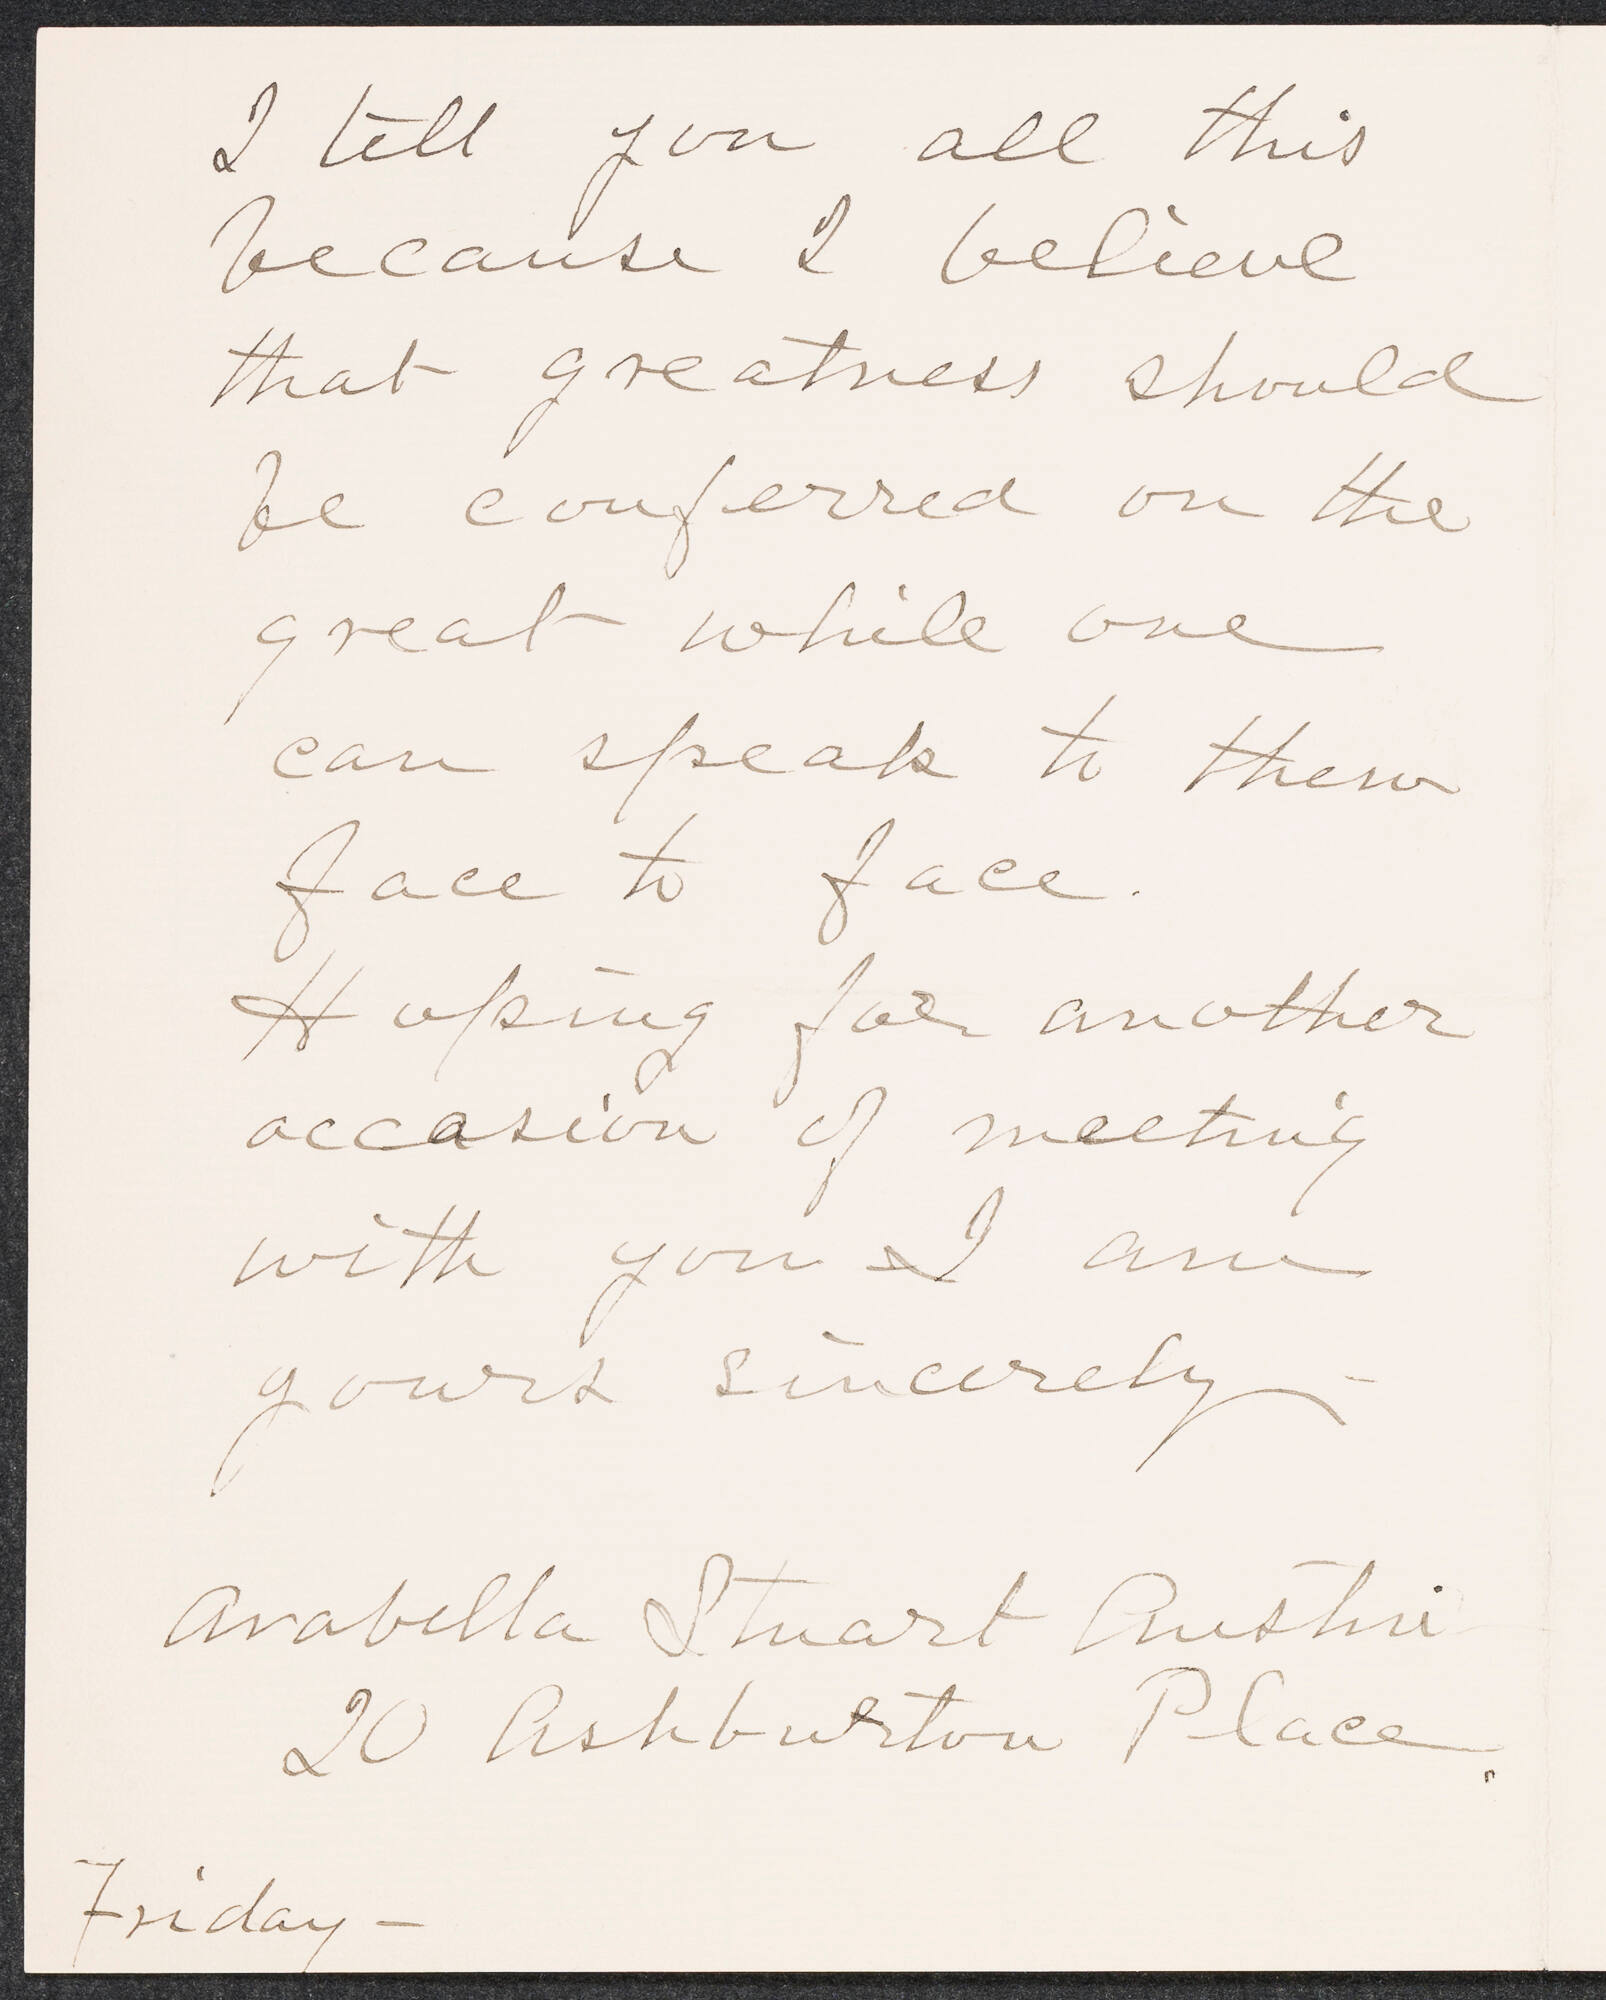 I tell you all this
because I believe
that greatness should
be conferred on the
great while one
can speak to them
face to face.
Hoping for another
occasion of meeting
with you I am
yours sincerely -
Arabella Stuart Austin
20 Ashburton Place.
Friday -